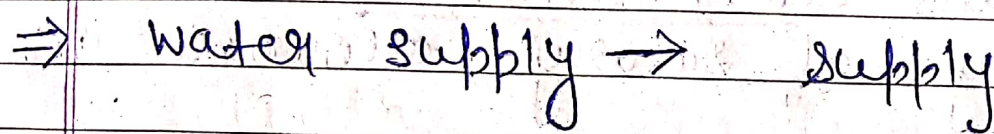 ⇒ water supply → supply